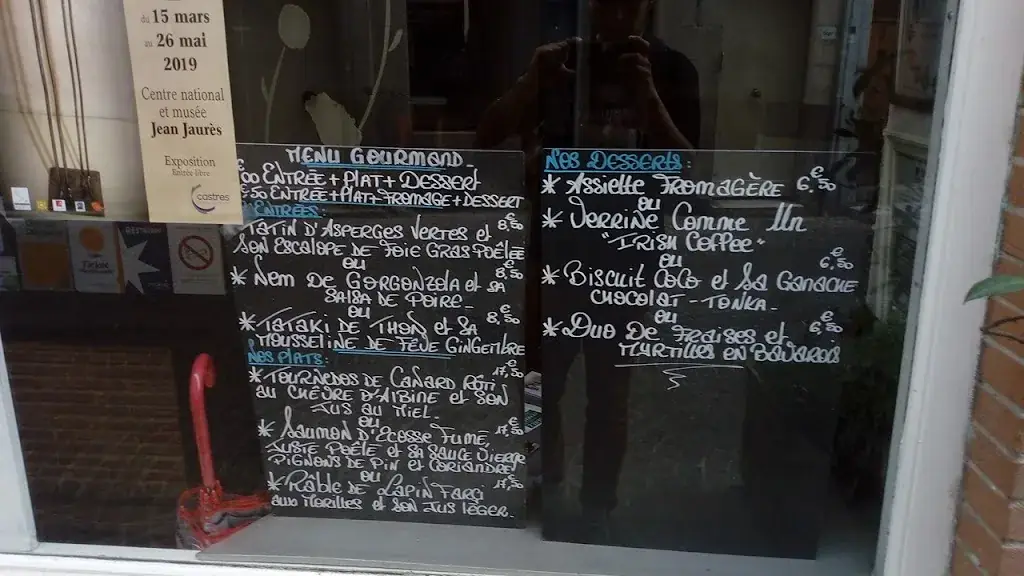 du 15 mars
au 26 mai
2019
Centre national
et musée
Jean Jaurès
Exposition
Entrée libre
castres
MENU GOURMAND
ENTRÉE + PLAT + DESSERT
ENTRÉE + PLAT + FROMAGE + DESSERT
ENTRÉES:
TATIN D'ASPERGES VERTES et 8,50€
SON ESCALOPE DE FOIE GRAS POÊLÉE
OU
* NEM DE GORGONZOLA et SA 8,50€
SALSA DE POIRE
OU
* TATAKI DE THON et SA 8,50€
MOUSSELINE DE FÈVE GINGEMBRE
NOS PLATS:
* TOURNEDOS DE CANARD RÔTI 17,50€
AU CHÈVRE D'ALBINE et SON
JUS AU MIEL
OU
* SAUMON D'ECOSSE FUMÉ, 17,50€
JUSTE POÊLÉ et SA SAUCE VIERGE
PIGNONS DE PIN et CORIANDRE
OU 17,50€
* Râble DE LAPIN FARCI
AUX MORILLES et SON JUS LÉGER.
NOS DESSERTS:
* ASSIETTE FROMAGÈRE 6,50€
OU
* VERRINE COMME UN
"IRISH COFFEE"
OU 6,50€
* BISCUIT COCO et SA GANACHE
CHOCOLAT - TONKA
OU 6,50€
* DUO DE FRAISES et
MYRTILLES EN BAVAROIS